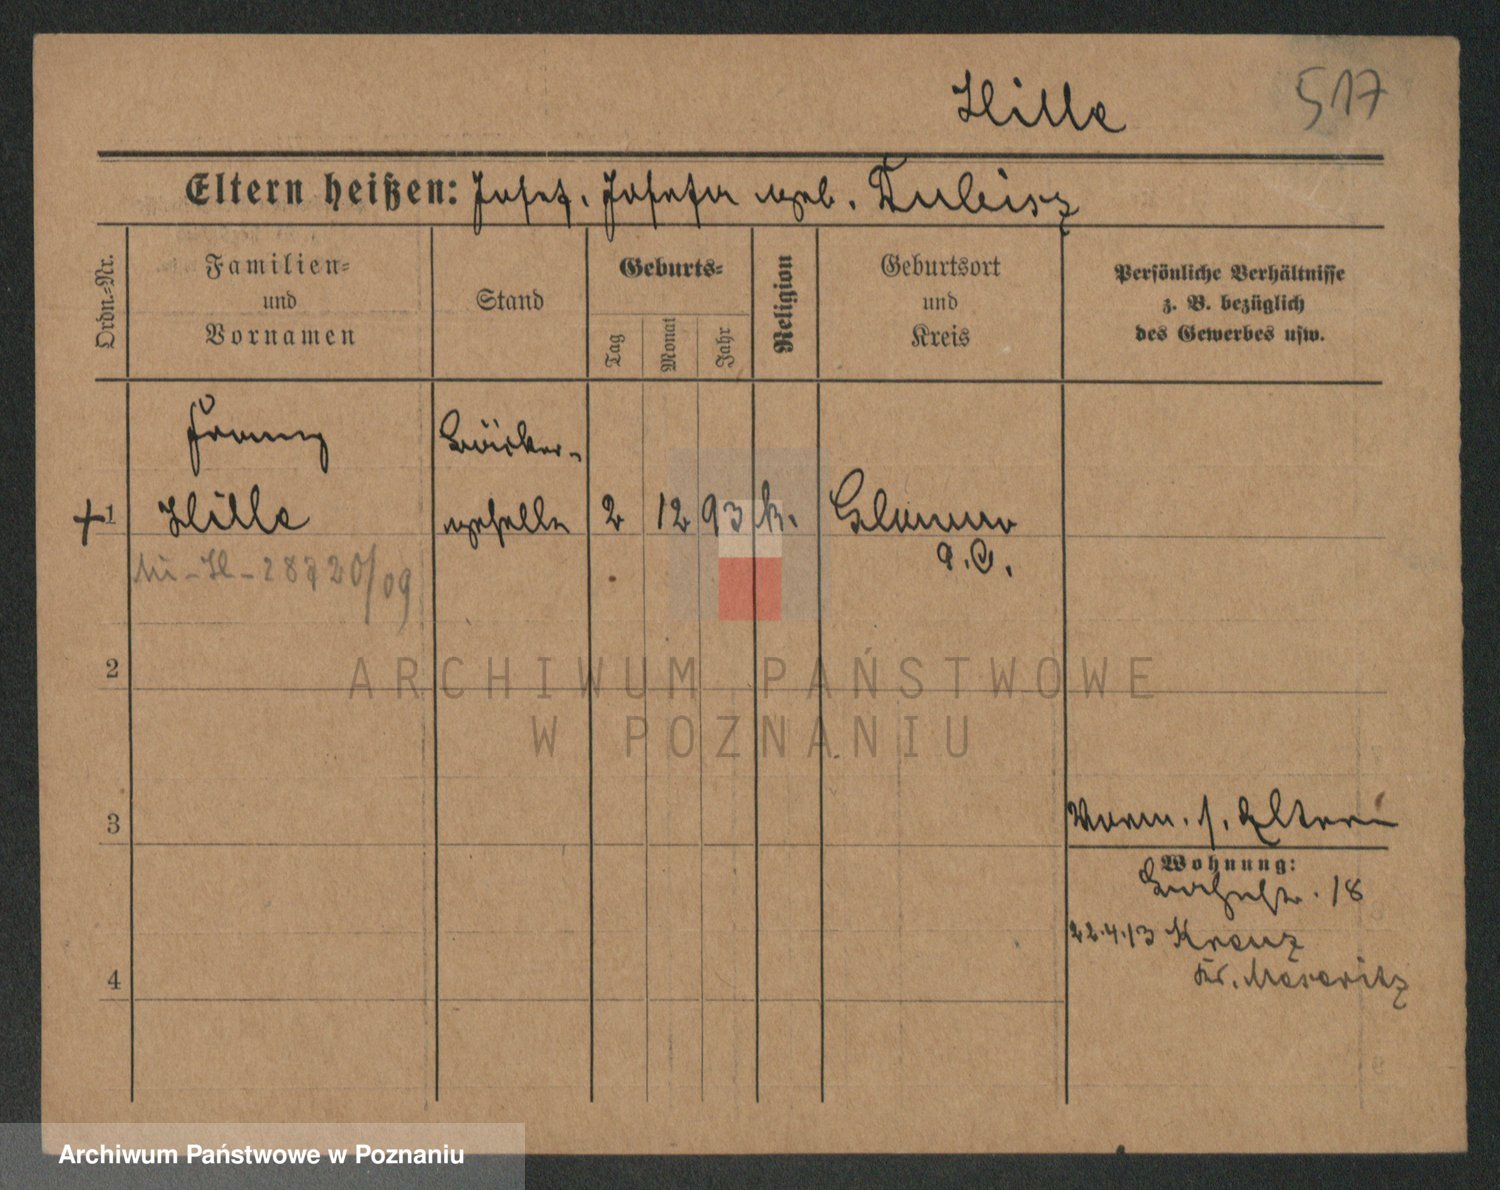 Hille 517
Eltern heißen: Josef, Josefa geb. Dubisz
Ordn.-Nr.
Familien-
und
Vornamen
Stand
Geburts-
Tag
Monat
Jahr
Religion
Geburtsort
und
Kreis
Persönliche Verhältnisse
z. B. bezüglich
des Gewerbes usw.
Franz Bäcker-
+ 1 Hille geselle 2 12 93 k.
a. O.
20/09
ARCHIWUM PAŃSTWOWE
2
W POZNANIU
3
Eltern
Wohnung:
18
22.4.13 Kreuz
4
Kr. Meseritz
Archiwum Państwowe w Poznaniu